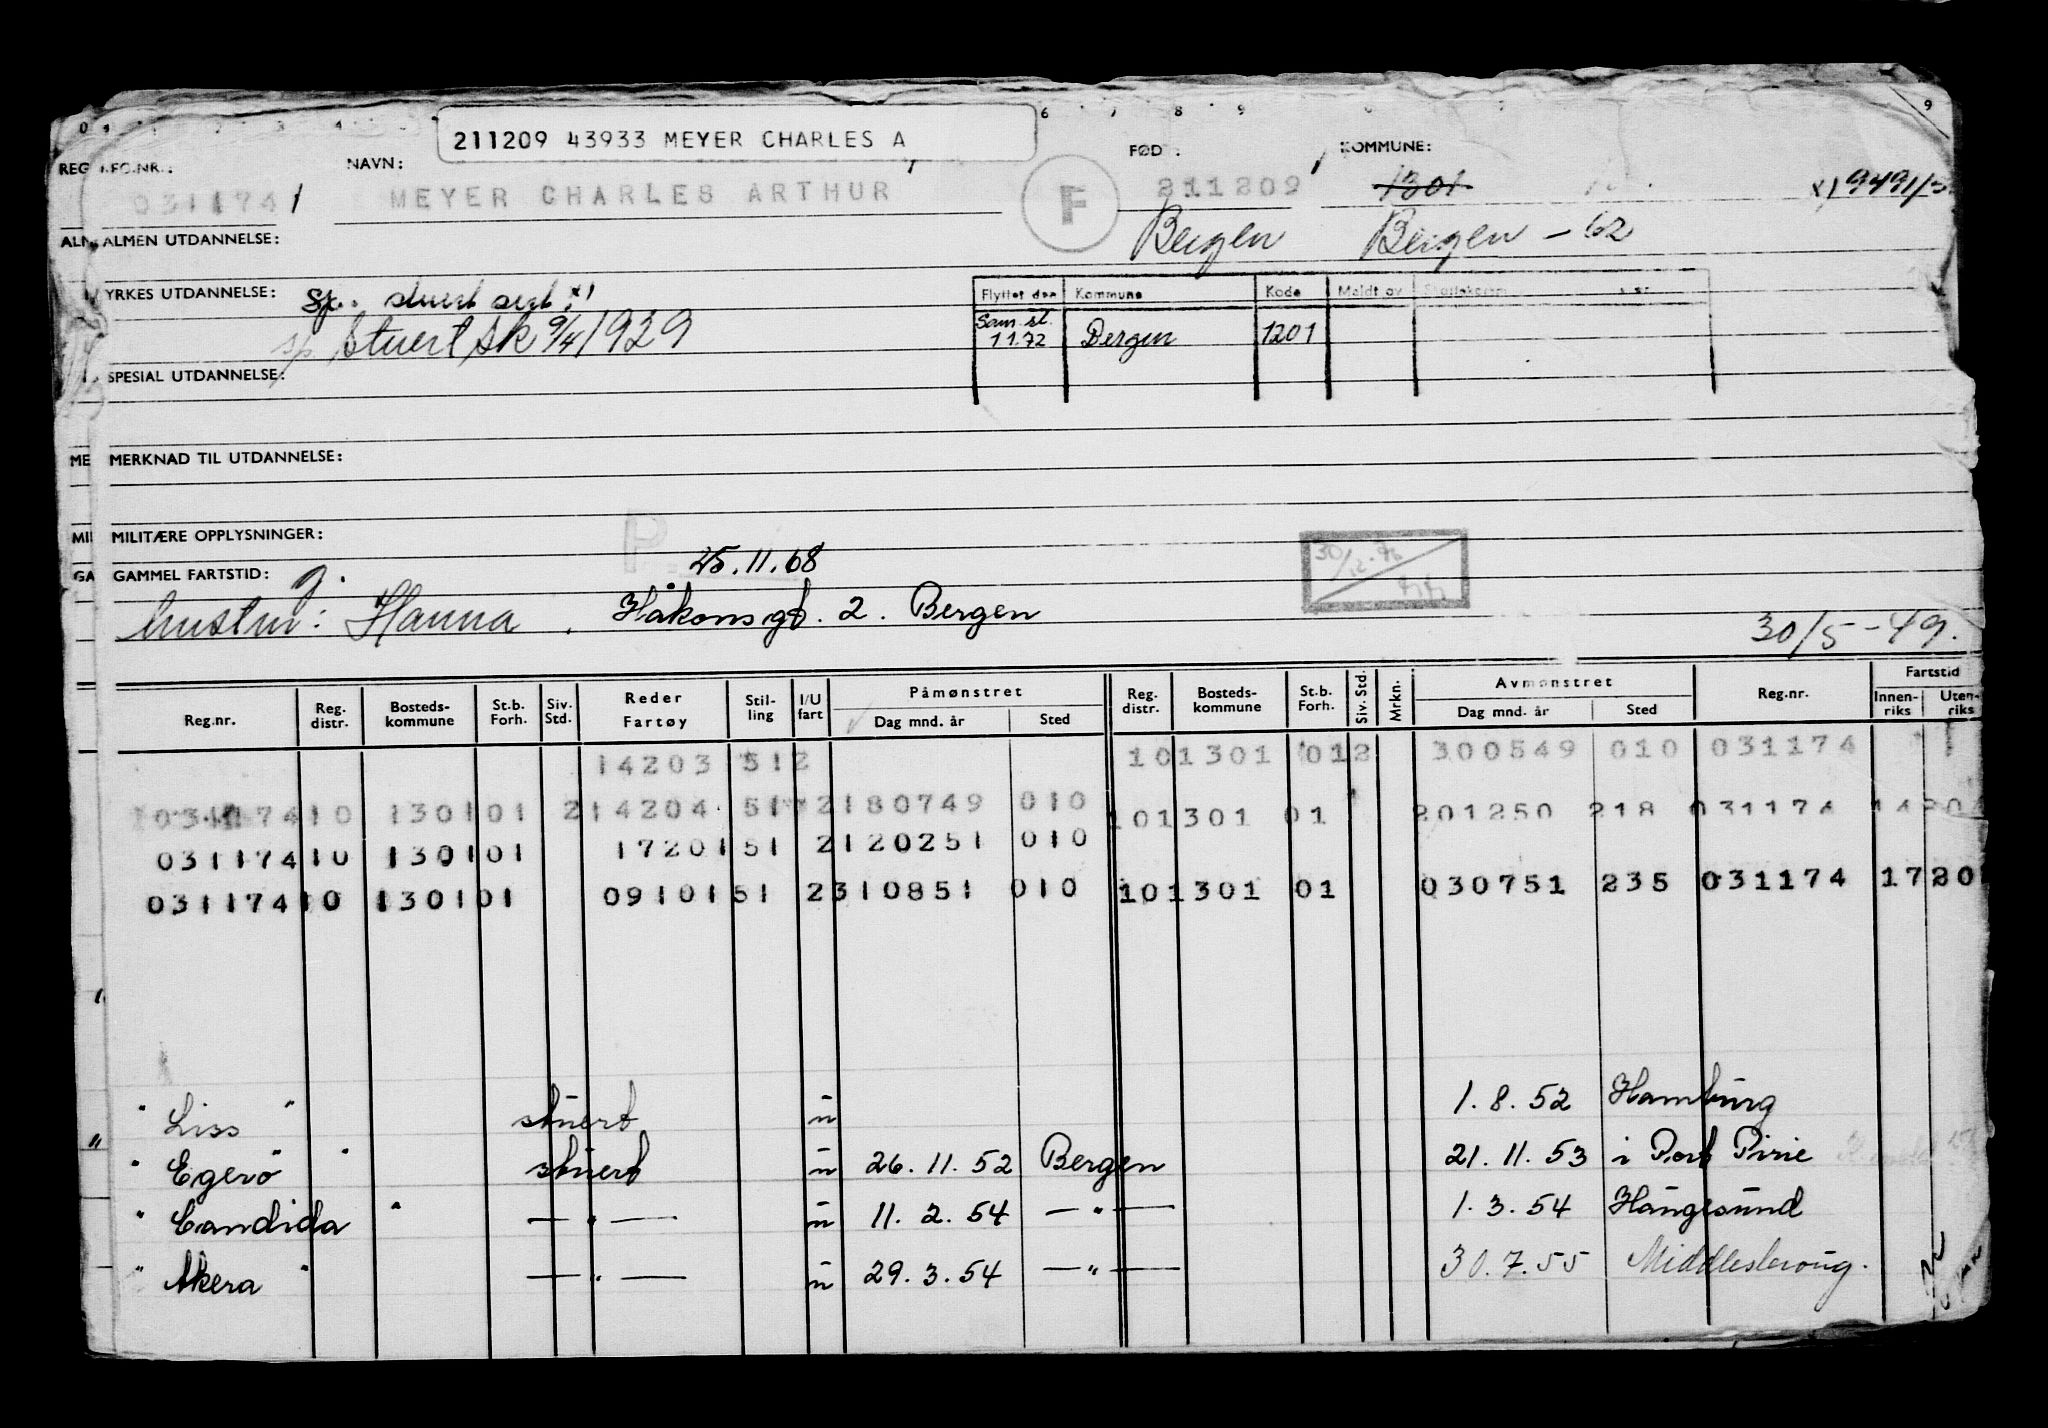 211209 43933 MEYER CHARLES A
REG.NR.: NAVN: FØDT: KOMMUNE:
0311741 MEYER CHARLES ARTHUR F 211209 1301
ALMEN UTDANNELSE: Bergen Bergen - 62
YRKES UTDANNELSE: Sp. stuert sert. x)
Flyttet den Kommune Kode Meldt av
sp Stuert sk 9/4 1929 Sam.st. 1172 Bergen 1201
SPESIAL UTDANNELSE:
MERKNAD TIL UTDANNELSE:
MILITÆRE OPPLYSNINGER: P.
GAMMEL FARTSTID: g. 25.11.68
hustru: Hanna, Håkonsgt. 2. Bergen 30/5-49.
Reg.nr. Reg. distr. Bosteds- kommune St.b. Forh. Siv. Std. Reder Fartøy Stil- ling I/U fart Påmønstret Dag mnd. år Sted Reg. distr. Bosteds- kommune St.b. Forh. Siv. Std. Mrkn. Avmønstret Dag mnd. år Sted Reg.nr. Fartstid Innen- riks Uten- riks
14203 512 101301 012 300549 010 031174
03117410 130101 214204 51 2180749 010 101301 01 201250 218 031174 14204
03117410 130101 17201 51 2120251 010
03117410 130101 09101 51 2310851 010 101301 01 030751 235 031174 1720
" Liss " stuert u 1.8.52 Hamburg
" Egerö " stuert u 26.11.52 Bergen 21.11.53 i Port Pirie
" Candida " — " — u 11.2.54 — " — 1.3.54 Haugesund
" Akera " — " — u 29.3.54 — " — 30.7.55 Middlesbroug.